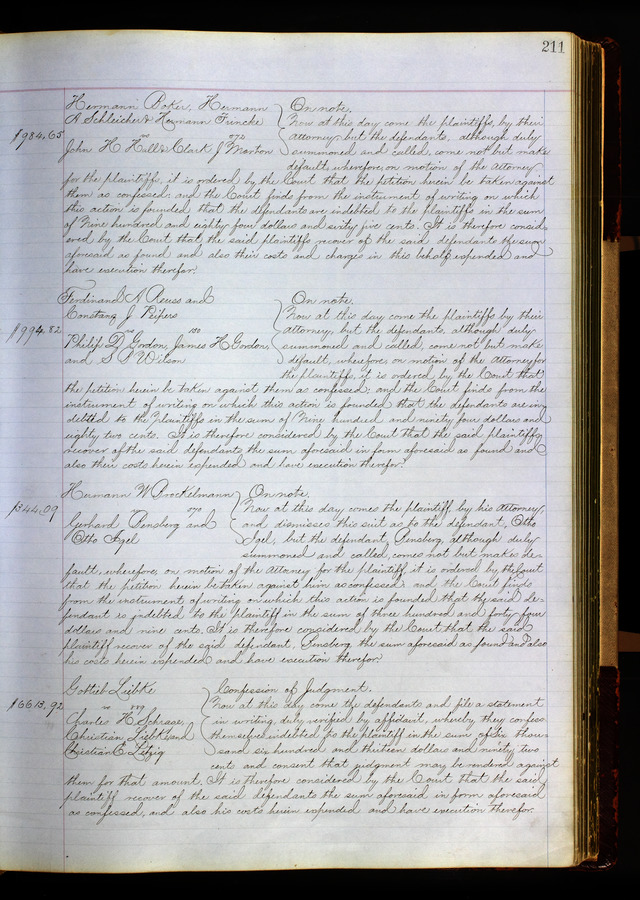 211
Hermann Boker, Hermann } On note.
A Schleicher & Hermann Funcke } Now at this day come the plaintiffs, by their
$984.65 vs 872 attorney but the defendants, although duly
John H Hall & Clark J Morton summoned and called, come not but make
default, wherefore, on motion of the attorney
for the plaintiffs, it is ordered by the Court that the petition herein be taken against
them as confessed; and the Court finds from the instrument of writing on which
this action is founded, that the defendants are indebted to the plaintiffs in the sum
of Nine hundred and eighty four dollars and sixty five cents. It is therefore consid-
ered by the Court that the said plaintiffs recover of the said defendants the sum
aforesaid as found and also their costs and charges in this behalf expended and
have execution therefor.
Ferdinand A Reuss and } On note.
Constanz J Peipers } Now at this day come the plaintiffs by their
$994.82 vs 180 attorney, but the defendants, although duly
Philip D Gordon, James H Gordon, summoned and called, come not but make
and S P Wilson default, wherefore, on motion of the Attorney for
the plaintiffs, it is ordered by the Court that
the petition herein be taken against them as confessed; and the Court finds from the
instrument of writing on which this action is founded that the defendants are in-
debted to the Plaintiffs in the sum of Nine hundred and ninety four dollars and
eighty two cents. It is therefore considered by the Court that the said plaintiffs
recover of the said defendants the sum aforesaid in form aforesaid as found and
also their costs herein expended and have execution therefor.
Hermann W Brockelmann } On note.
$344.09 vs 270 Now at this day comes the plaintiff by his Attorney,
Gerhard Pensberg and and dismisses this suit as to the defendant, Otto
Otto Igel Igel; but the defendant Pensberg, although duly
summoned and called, comes not but makes de-
fault, wherefore, on motion of the Attorney for the plaintiff it is ordered by the Court
that the petition herein be taken against him as confessed; and the Court finds
from the instrument of writing on which this action is founded that the said de-
fendant is indebted to the plaintiff in the sum of three hundred and forty four
dollars and nine cents. It is therefore considered by the Court that the said
plaintiff recover of the said defendant, Pensberg the sum aforesaid as found and also
his costs herein expended and have execution therefor.
Gottlieb Liebke } Confession of Judgment.
$6613.92 vs Now at this day come the defendants and file a statement
Charles H in writing, duly verified by affidavit, whereby they confess
Christian Liebke and themselves indebted to the plaintiff in the sum of Six thou-
Christian C sand six hundred and thirteen dollars and ninety two
cents and consent that judgment may be rendered against
them for that amount. It is therefore considered by the Court that the said
plaintiff recover of the said defendants the sum aforesaid in form aforesaid
as confessed, and also his costs herein expended and have execution therefor.